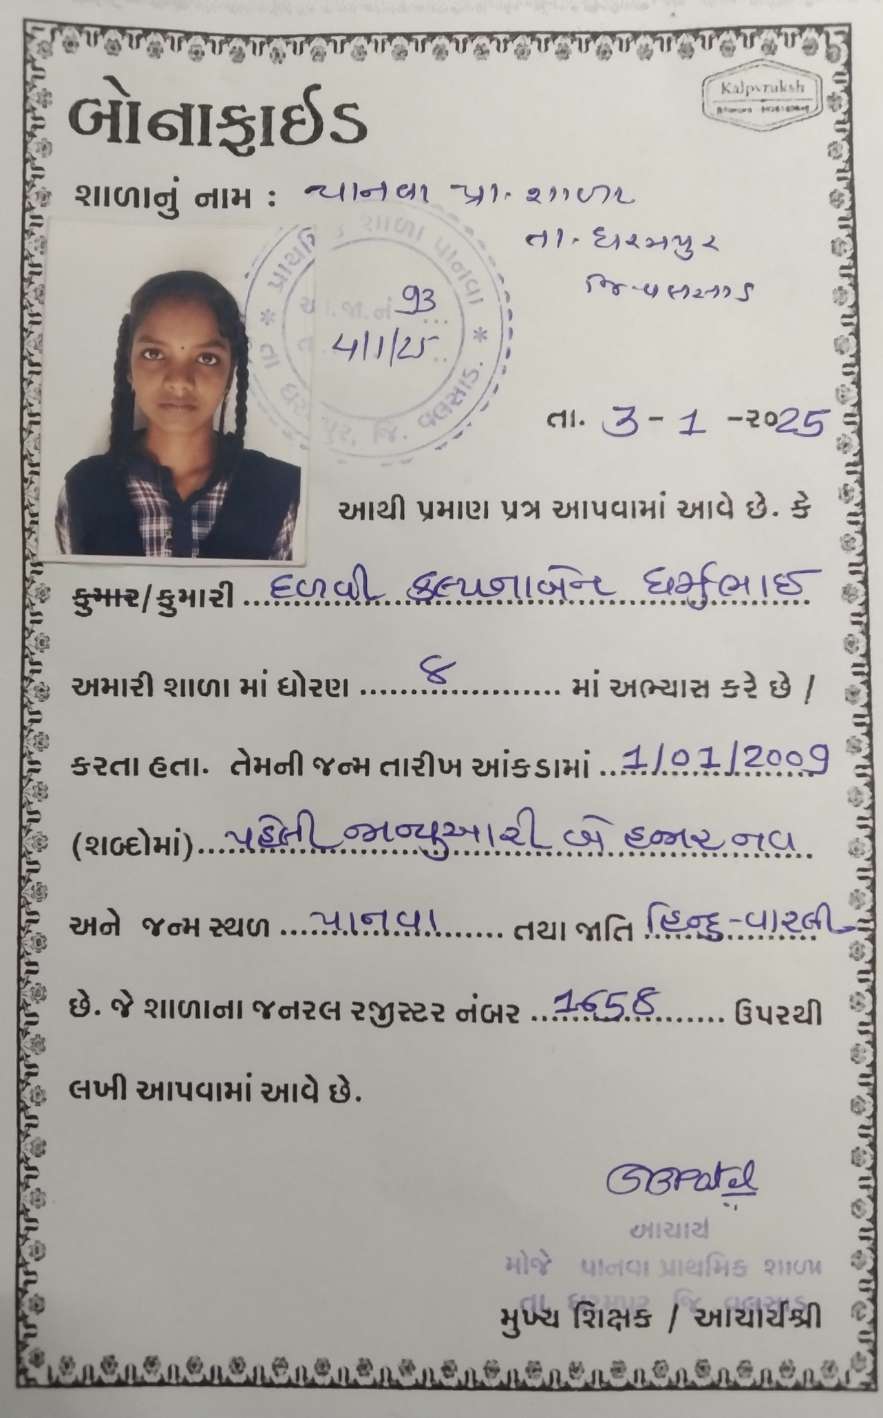 બોનાફાઈડ
Kalpvruksh
શાળાનું નામ : પાનવા પ્રા. શાળા
તા. ધરમપુર
જિ-વલસાડ
પ્રાથમિક શાળા પાનવા * તા ધરમપુર, જિ. વલસાડ. *
જા.નં 93
4/1/25
તા. 3-1-૨૦25
આથી પ્રમાણ પત્ર આપવામાં આવે છે. કે
કુમાર/કુમારી દળવી કલ્પનાબેન ધર્મુભાઈ
અમારી શાળા માં ધોરણ ૪ માં અભ્યાસ કરે છે /
કરતા હતા. તેમની જન્મ તારીખ આંકડામાં 1/01/2009
(શબ્દોમાં) પહેલી જાન્યુઆરી બે હજાર નવ
અને જન્મ સ્થળ પાનવા તથા જાતિ હિન્દુ-વારલી
છે. જે શાળાના જનરલ રજીસ્ટર નંબર 1658 ઉપરથી
લખી આપવામાં આવે છે.
GBPatel
આચાર્ય
મોજે પાનવા પ્રાથમિક શાળા
તા ધરમપુર જિ વલસાડ
મુખ્ય શિક્ષક / આચાર્યશ્રી